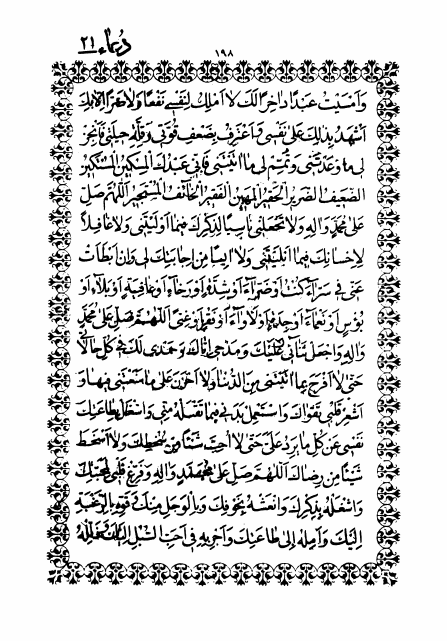 دعاء ٢١
١٩٨
وَاَمْسَيْتُ عَبْدًا دَاخِرًا لَكَ لا اَمْلِكُ لِنَفْسِي نَفْعًا وَلا ضَرًّا اِلاّ بِكَ
اَشْهَدُ بِذلِكَ عَلى نَفْسِي وَاَعْتَرِفُ بِضَعْفِ قُوَّتِي وَقِلَّةِ حِيلَتِي فَاَنْجِزْ
لِي ما وَعَدْتَنِي وَتَمِّمْ لِي ما اتَيْتَنِي فَاِنِّي عَبْدُكَ الْمِسْكِينُ الْمُسْتَكِينُ
الضَّعِيفُ الضَّرِيرُ الْحَقِيرُ الْمَهِينُ الْفَقِيرُ الْخائِفُ الْمُسْتَجِيرُ اَللّهُمَّ صَلِّ
عَلى مُحَمَّدٍ وَالِهِ وَلا تَجْعَلْنِي ناسِيًا لِذِكْرِكَ فِيما اَوْلَيْتَنِي وَلا غافِلاً
لِاِحْسانِكَ فِيما اَبْلَيْتَنِي وَلا ايِسًا مِنْ اِجابَتِكَ لِي وَاِنْ اَبْطَاَتْ
عَنِّي فِي سَرّاءَ كُنْتُ اَوْ ضَرّاءَ اَوْ شِدَّةٍ اَوْ رَخاءٍ اَوْ عافِيَةٍ اَوْ بَلاءٍ اَوْ
بُؤْسٍ اَوْ نَعْماءَ اَوْ جِدَةٍ اَوْ لَاْواءَ اَوْ فَقْرٍ اَوْ غِنًى اَللّهُمَّ صَلِّ عَلى مُحَمَّدٍ
وَالِهِ وَاجْعَلْ ثَنائِي عَلَيْكَ وَمَدْحِي اِيّاكَ وَحَمْدِي لَكَ فِي كُلِّ حالاتِي
حَتّى لا اَفْرَحَ بِما اتَيْتَنِي مِنَ الدُّنْيا وَلا اَحْزَنَ عَلى ما مَنَعْتَنِي فِيها وَ
اَشْعِرْ قَلْبِي تَقْواكَ وَاسْتَعْمِلْ بَدَنِي فِيما تَقْبَلُهُ مِنِّي وَاشْغَلْ بِطاعَتِكَ
نَفْسِي عَنْ كُلِّ ما يَرِدُ عَلَيَّ حَتّى لا اُحِبَّ شَيْئًا مِنْ سُخْطِكَ وَلا اَسْخَطَ
شَيْئًا مِنْ رِضاكَ اَللّهُمَّ صَلِّ عَلى مُحَمَّدٍ وَالِهِ وَفَرِّغْ قَلْبِي لِمَحَبَّتِكَ
وَاشْغَلْهُ بِذِكْرِكَ وَانْعَشْهُ بِخَوْفِكَ وَبِالْوَجَلِ مِنْكَ وَقَوِّهِ بِالرَّغْبَةِ
اِلَيْكَ وَاَمِلْهُ اِلى طاعَتِكَ وَاَجْرِ بِهِ فِي اَحَبِّ السُّبُلِ اِلَيْكَ وَذَلِّلْهُ